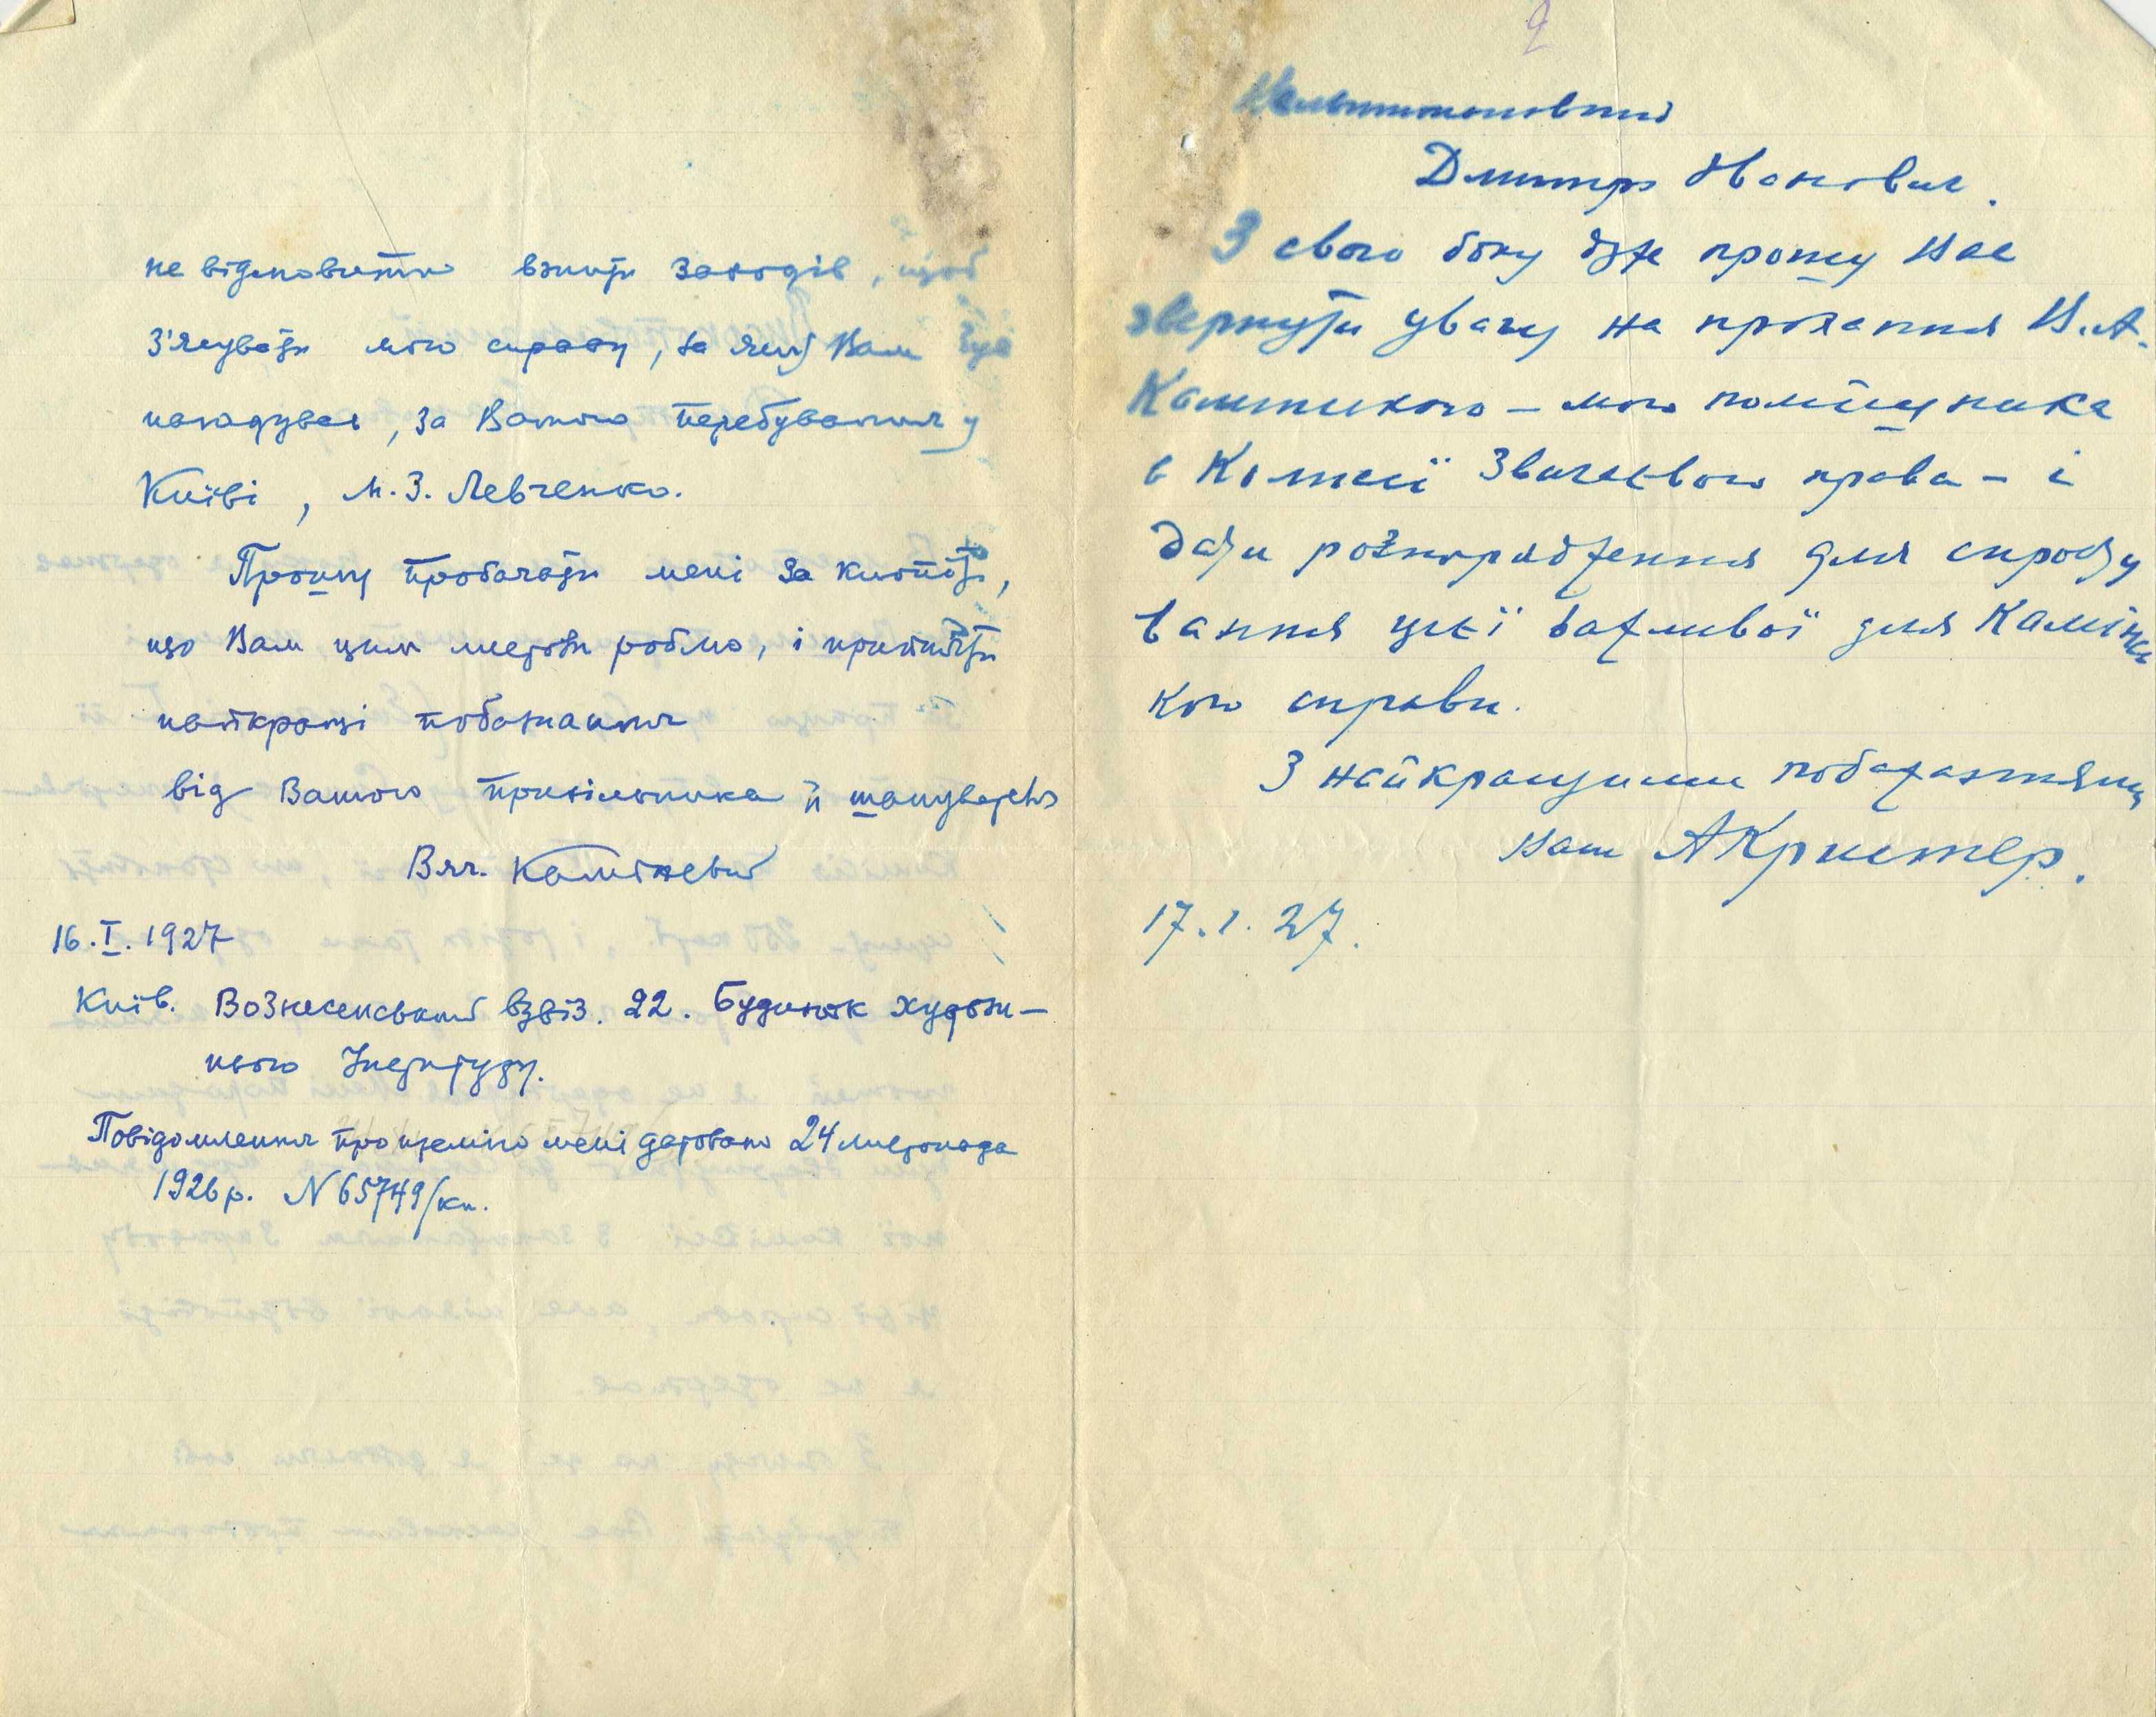 не відмовити вжити заходів, щоб
з'ясувати мою справу, за яку Вам
нагадував, за Вашого перебування у
Київі, М. З. Левченко.
Прошу пробачати мені за клопоти,
що Вам цим листом роблю, і прийняти
найкращі побажання
від Вашого прихільника й шанувателя
Вяч. Камінський
16.I.1927
Київ. Вознесенський взвіз. 22. Будинок худож-
нього Інституту.
Повідомлення про премію мені датовано 24 листопада
1926 р. N 65749/кн.
9
Вельмишановний
Дмитро Иванович.
З свого боку дуже прошу Вас
звернути увагу на прохання В.А.
Камінського – мого помішника
в Комісії Звичаєвого права – і
дати розпорядження для спросту
вання цієї важливої для Камінсь
кого справи.
З найкращими побажаннями
Ваш АКристер.
17.1.27.